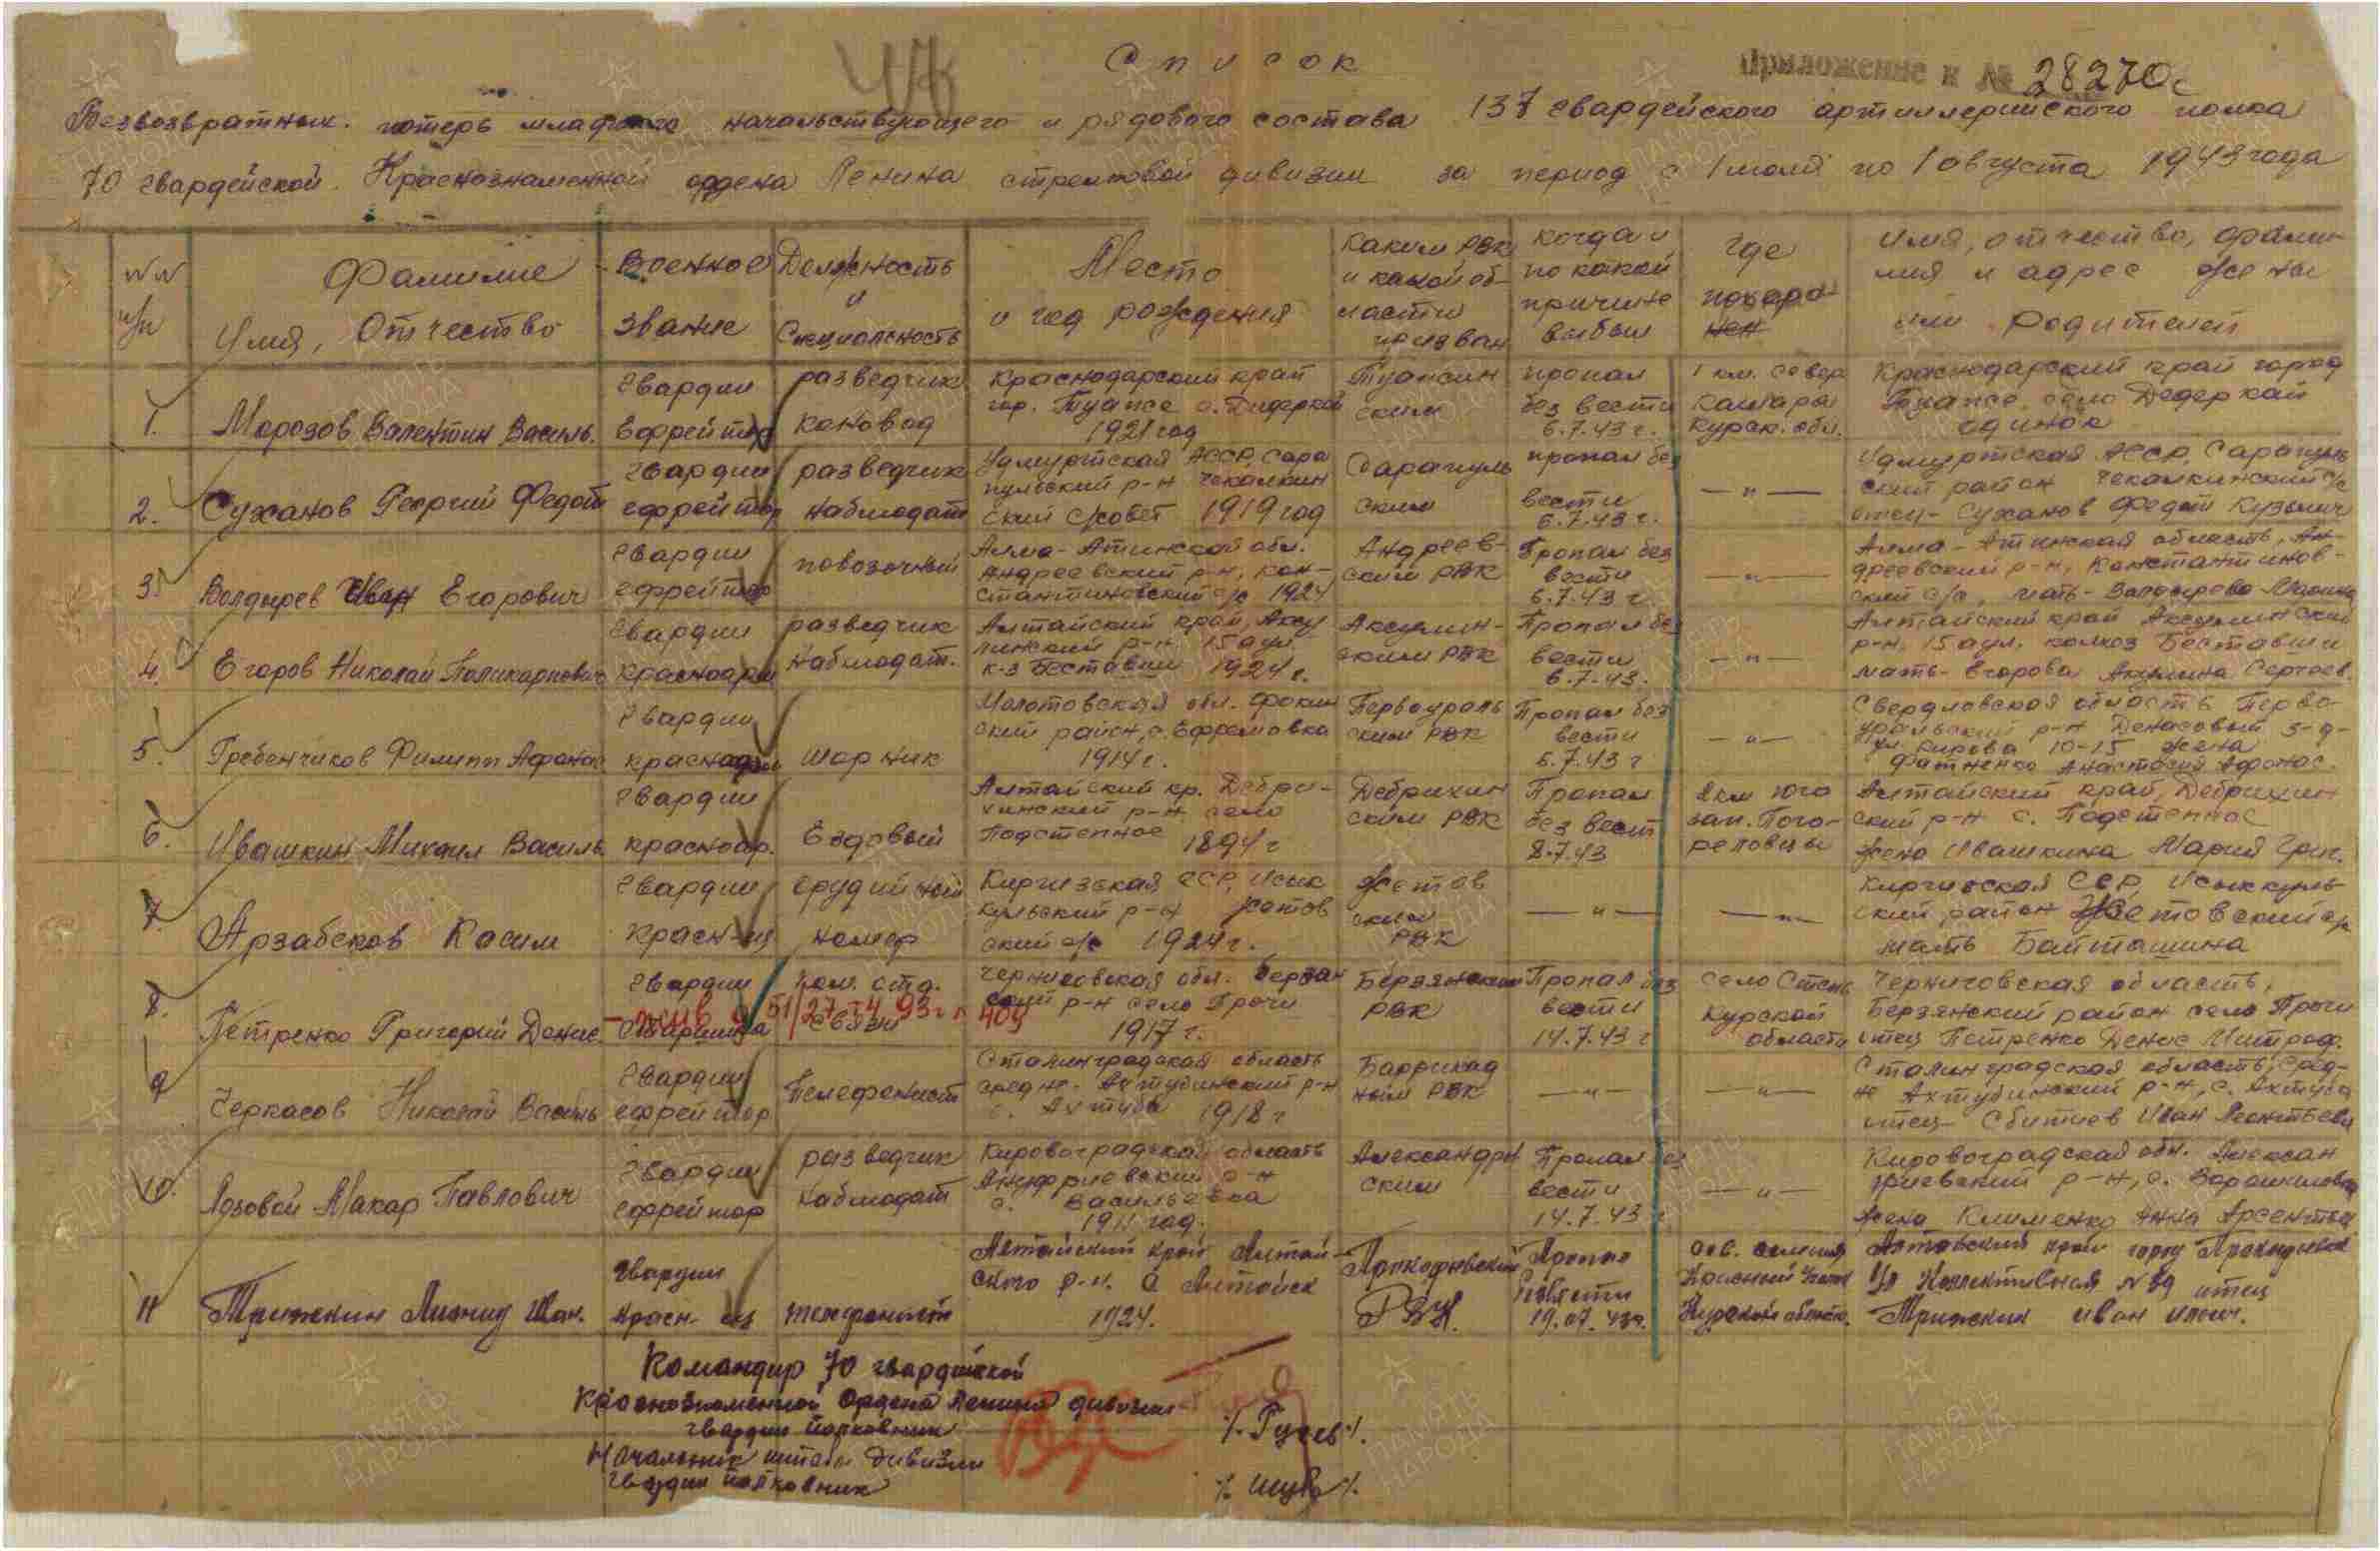 Список
Приложение к № 28270с
Безвозвратных потерь младшего начальствующего и рядового состава 137 гвардейского артиллерийского полка
70 гвардейской Краснознаменной ордена Ленина стрелковой дивизии за период с 1 июля по 1 августа 1943 года
№№ п/п
Фамилие Имя, Отчество
Военное звание
Должность и специальность
Место и год рождения
Каким РВК и какой области призван
Когда и по какой причине выбыл
Где похоронен
Имя, отчество, фамилия и адрес жены или родителей
1. Морозов Валентин Василь.
гвардии ефрейтор
разведчик коновод
Краснодарский край гор. Туапсе 1921 год
Туапсинским
пропал без вести 6.7.43 г.
1 км. север Курск. обл.
Краснодарский край город Туапсе село Дедеркой одинок
2. Суханов Георгий Федот
гвардии ефрейтор
разведчик наблюдат
Удмуртская АССР, Сарапульский р-н Чекалкинский с/совет 1919 год
Сарапульским
пропал без вести 6.7.43 г.
— " —
Удмуртская АССР, Сарапульский район Чекалкинский с/с отец - Суханов Федот Кузьмич
3. Болдырев Иван Егорович
гвардии ефрейтор
повозочный
Алма-Атинской обл. Андреевский р-н, Константиновский с/с 1924
Андреевским РВК
Пропал без вести 6.7.43 г
— " —
Алма-Атинская область, Андреевский р-н, Константиновский с/с, мать - Болдырева Марина
4. Егоров Николай Поликарпович
гвардии красноарм
разведчик наблюдат.
Алтайский край, Аксулинский р-н 15 аул к-з Беставши 1924 г.
Аксулинским РВК
Пропал без вести 6.7.43.
— " —
Алтайский край Аксулинский р-н, 15 аул, колхоз Беставши мать - Егорова Акулина Сергеев.
5. Гребенчиков Филипп Афонас
гвардии красноарм
шорник
Молотовская обл. Фокинский район, с. Ефремовка 1914 г.
Первоуральским РВК
Пропал без вести 6.7.43 г
— " —
Свердловская область Первоуральский р-н Денасовый з-д- ул. Кирова 10-15 жена Анастасия Афонас.
6. Ивашкин Михаил Василь.
гвардии красноар.
Ездовый
Алтайский кр. Дебрихинский р-н село Подстепное 1894 г
Дебрихинским РВК
Пропал без вест 8.7.43
2 км юго зап. Погореловцы
Алтайский край, Дебрихинский р-н с. Подстепное жена Ивашкина Мария Григ.
7. Арзабеков Касим
гвардии красн-ец
орудийный номер
Киргизская ССР, Исыккульский р-н Жетовский с/с 1924 г.
Жетовским РВК
— " —
— " —
Киргизская ССР, Исыккульский район Жетовский с/с мать Байташина
8. Петренко Григорий Денис.
гвардии старшина
ком. отд. связи
Черниговская обл. Берзянский р-н село Грочи 1917 г.
Берзянским РВК
Пропал без вести 14.7.43 г
село Стень Курской области
Черниговская область, Берзянский район село Грочи отец Петренко Денис Митроф.
9 Черкасов Николай Василь
гвардии ефрейтор
Телефонист
Сталинградская область средне-Ахтубинский р-н с. Ахтуба 1918 г
Баррикадным РВК
— " —
— " —
Сталинградская область, Средне Ахтубинский р-н, с. Ахтуба отец - Сбитнев Иван Леонтьеви
10. Лозовой Макар Павлович
гвардии ефрейтор
разведчик наблюдат
Кировоградской область Ануфриевский р-н с. Васильевка 1911 год.
Александрийским
Пропал без вести 14.7.43 г
— " —
Кировоградская обл. Александриевский р-н, с. Ворошиловка жена Клименко Анна Арсентье
11 Тришкин Леонид Иван.
Гвардии красн-ец
телефонист
Алтайский край Алтайского р-н. с Алтайск 1924.
Прокопьевский РВК.
Пропал без вести 19.07.43г.
Красный Курской област.
Алтайский край город Прокопьевск ул Коллективная № 89 отец Тришкин Иван Ильич.
Командир 70 гвардейской
Краснознаменной Ордена Ленина дивизии
гвардии полковник /Гусев/.
Начальник штаба дивизии
гвардии полковник